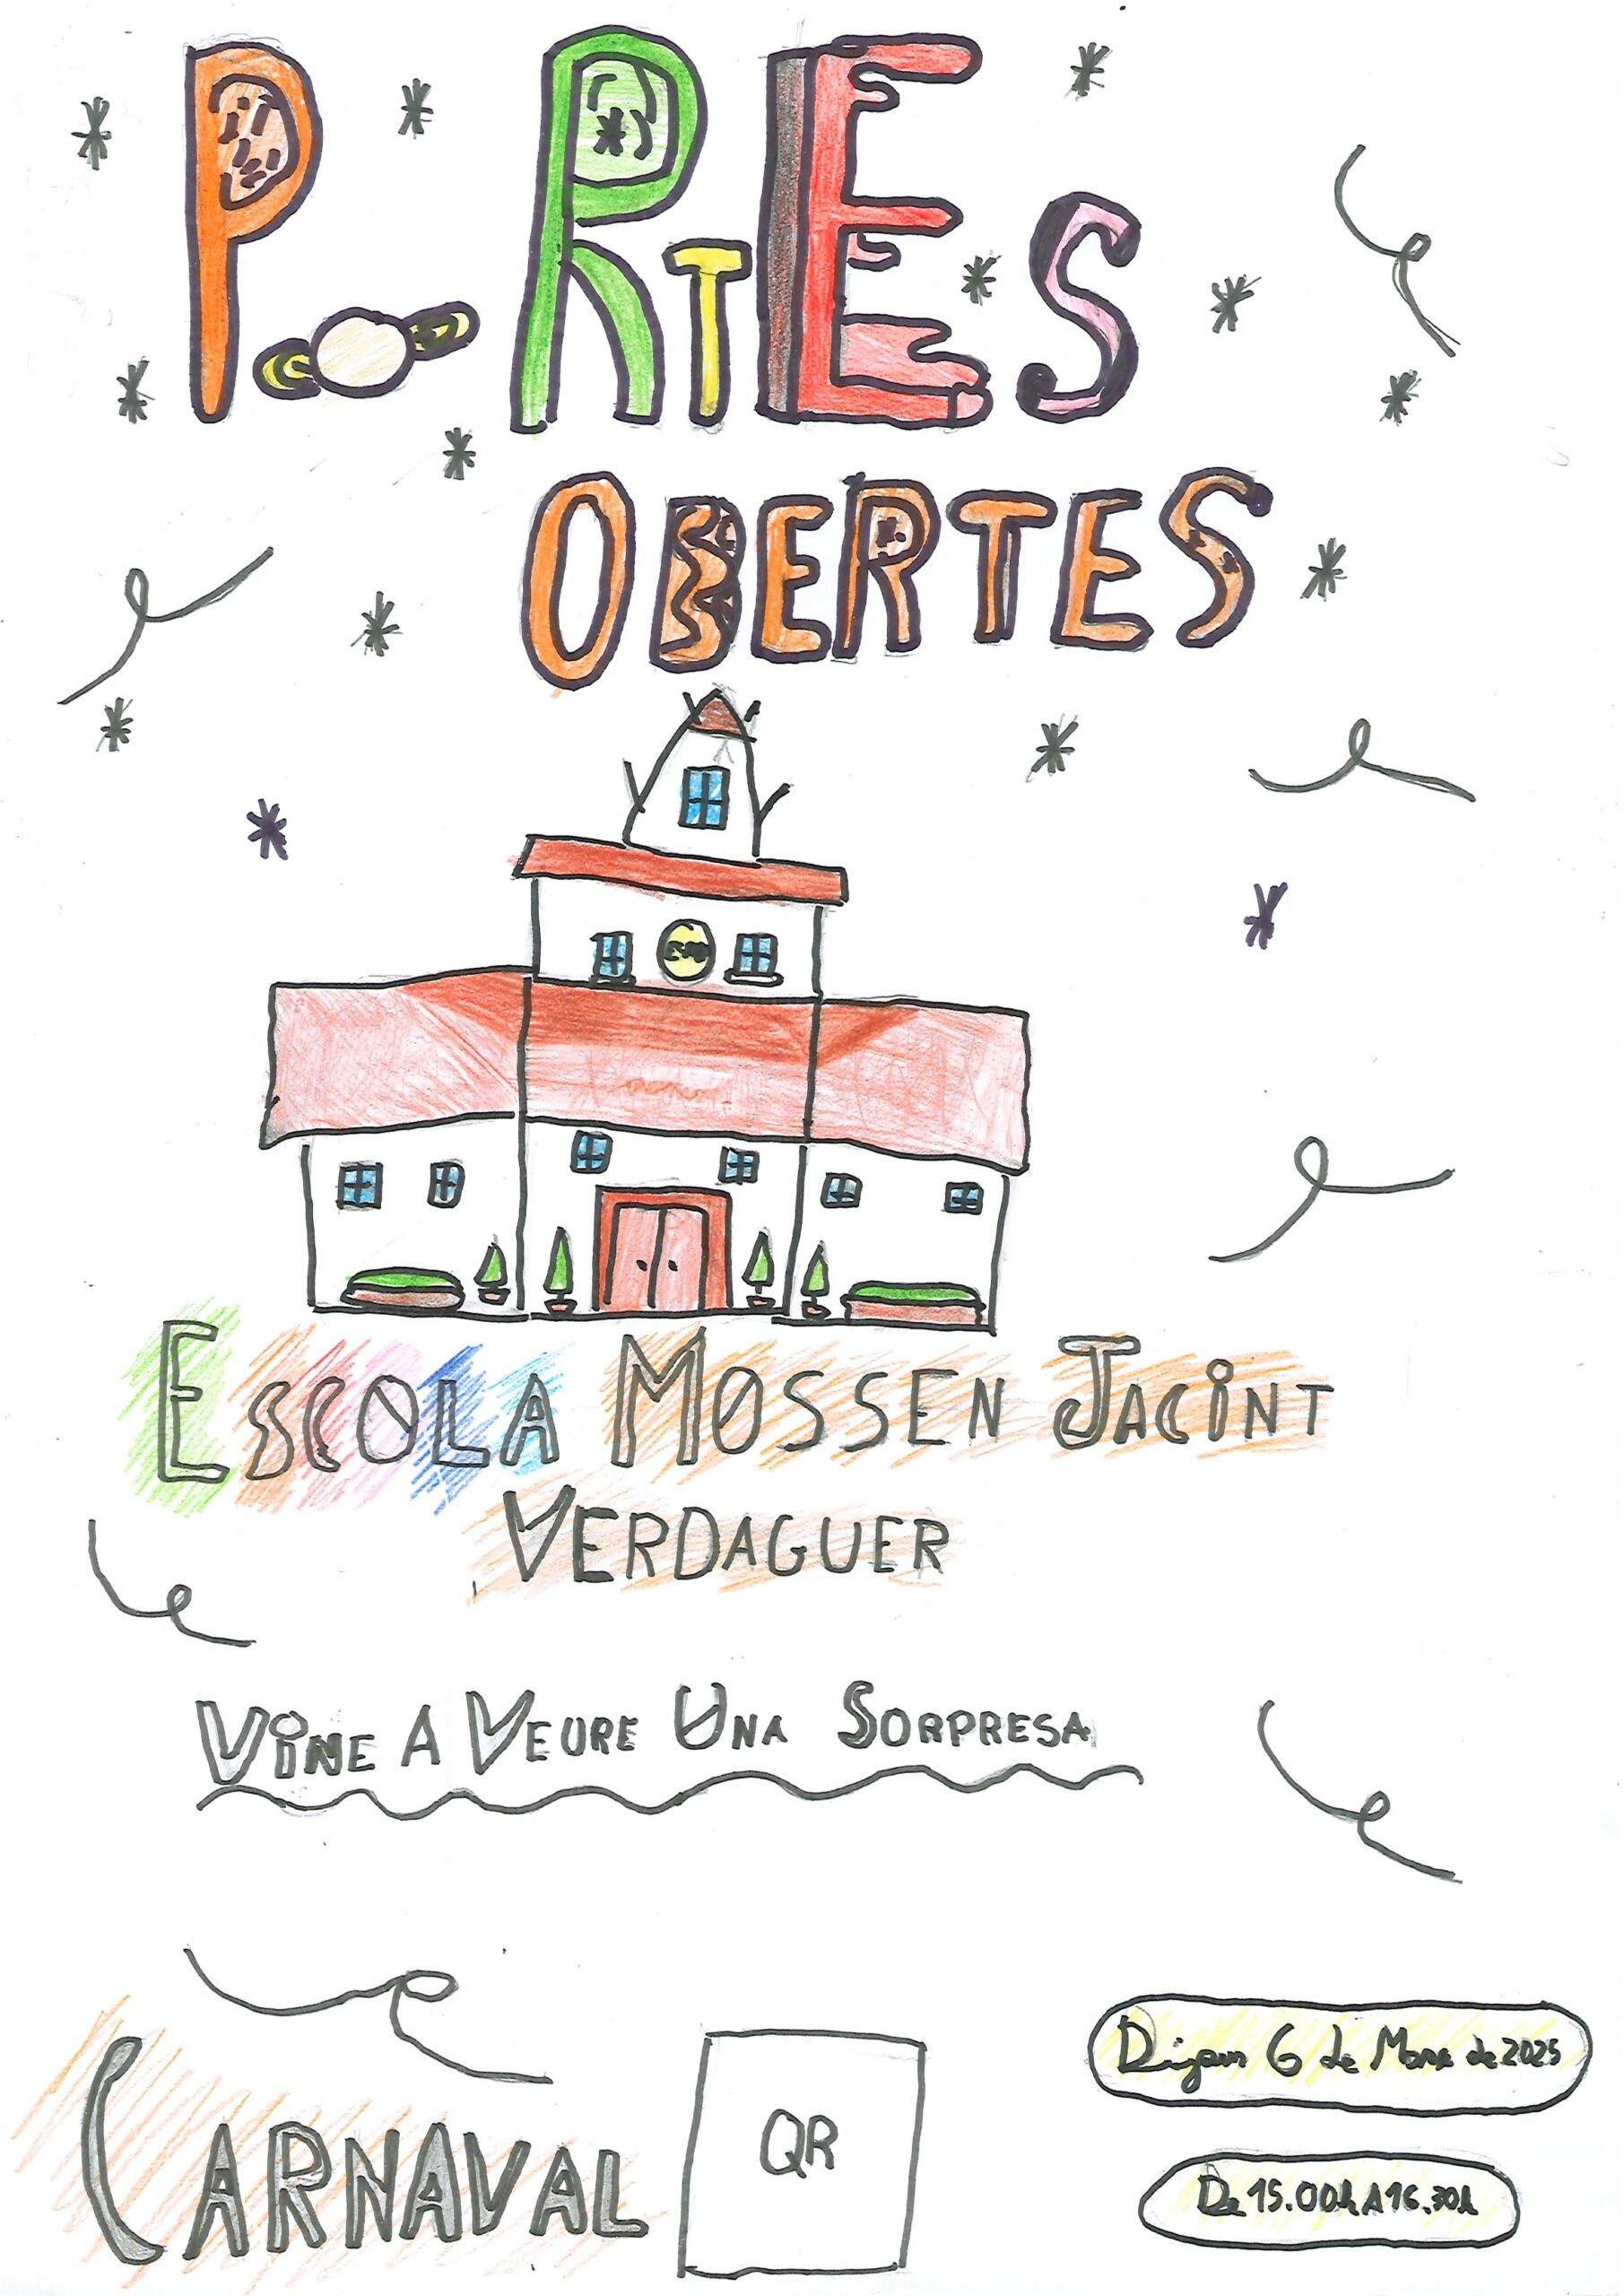 PoRTES
OBERTES
ESCOLA MOSSEN JACiNT
VERDAGUER
ViNE A VEURE UNA SORPRESA
CARNAVAL
QR
Dijous 6 de Març de 2025
De 15.00h A 16.30h